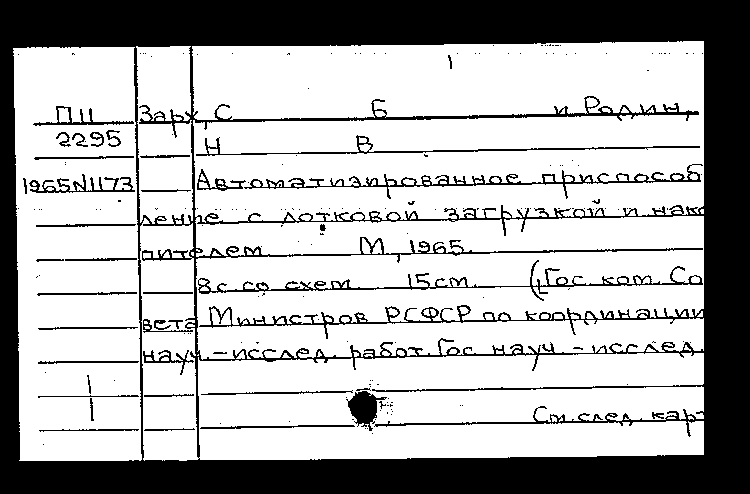 1
П11 Зарх, С Б и Родин,
2295 Н В
1965N1173 Автоматизированное приспособ
ление с лотковой загрузкой и нако
пителем М, 1965.
8 с со схем. 15см. (Гос ком. Со
вета Министров РСФСР по координации
науч.-исслед. работ. Гос науч.-исслед.
См. след. карт